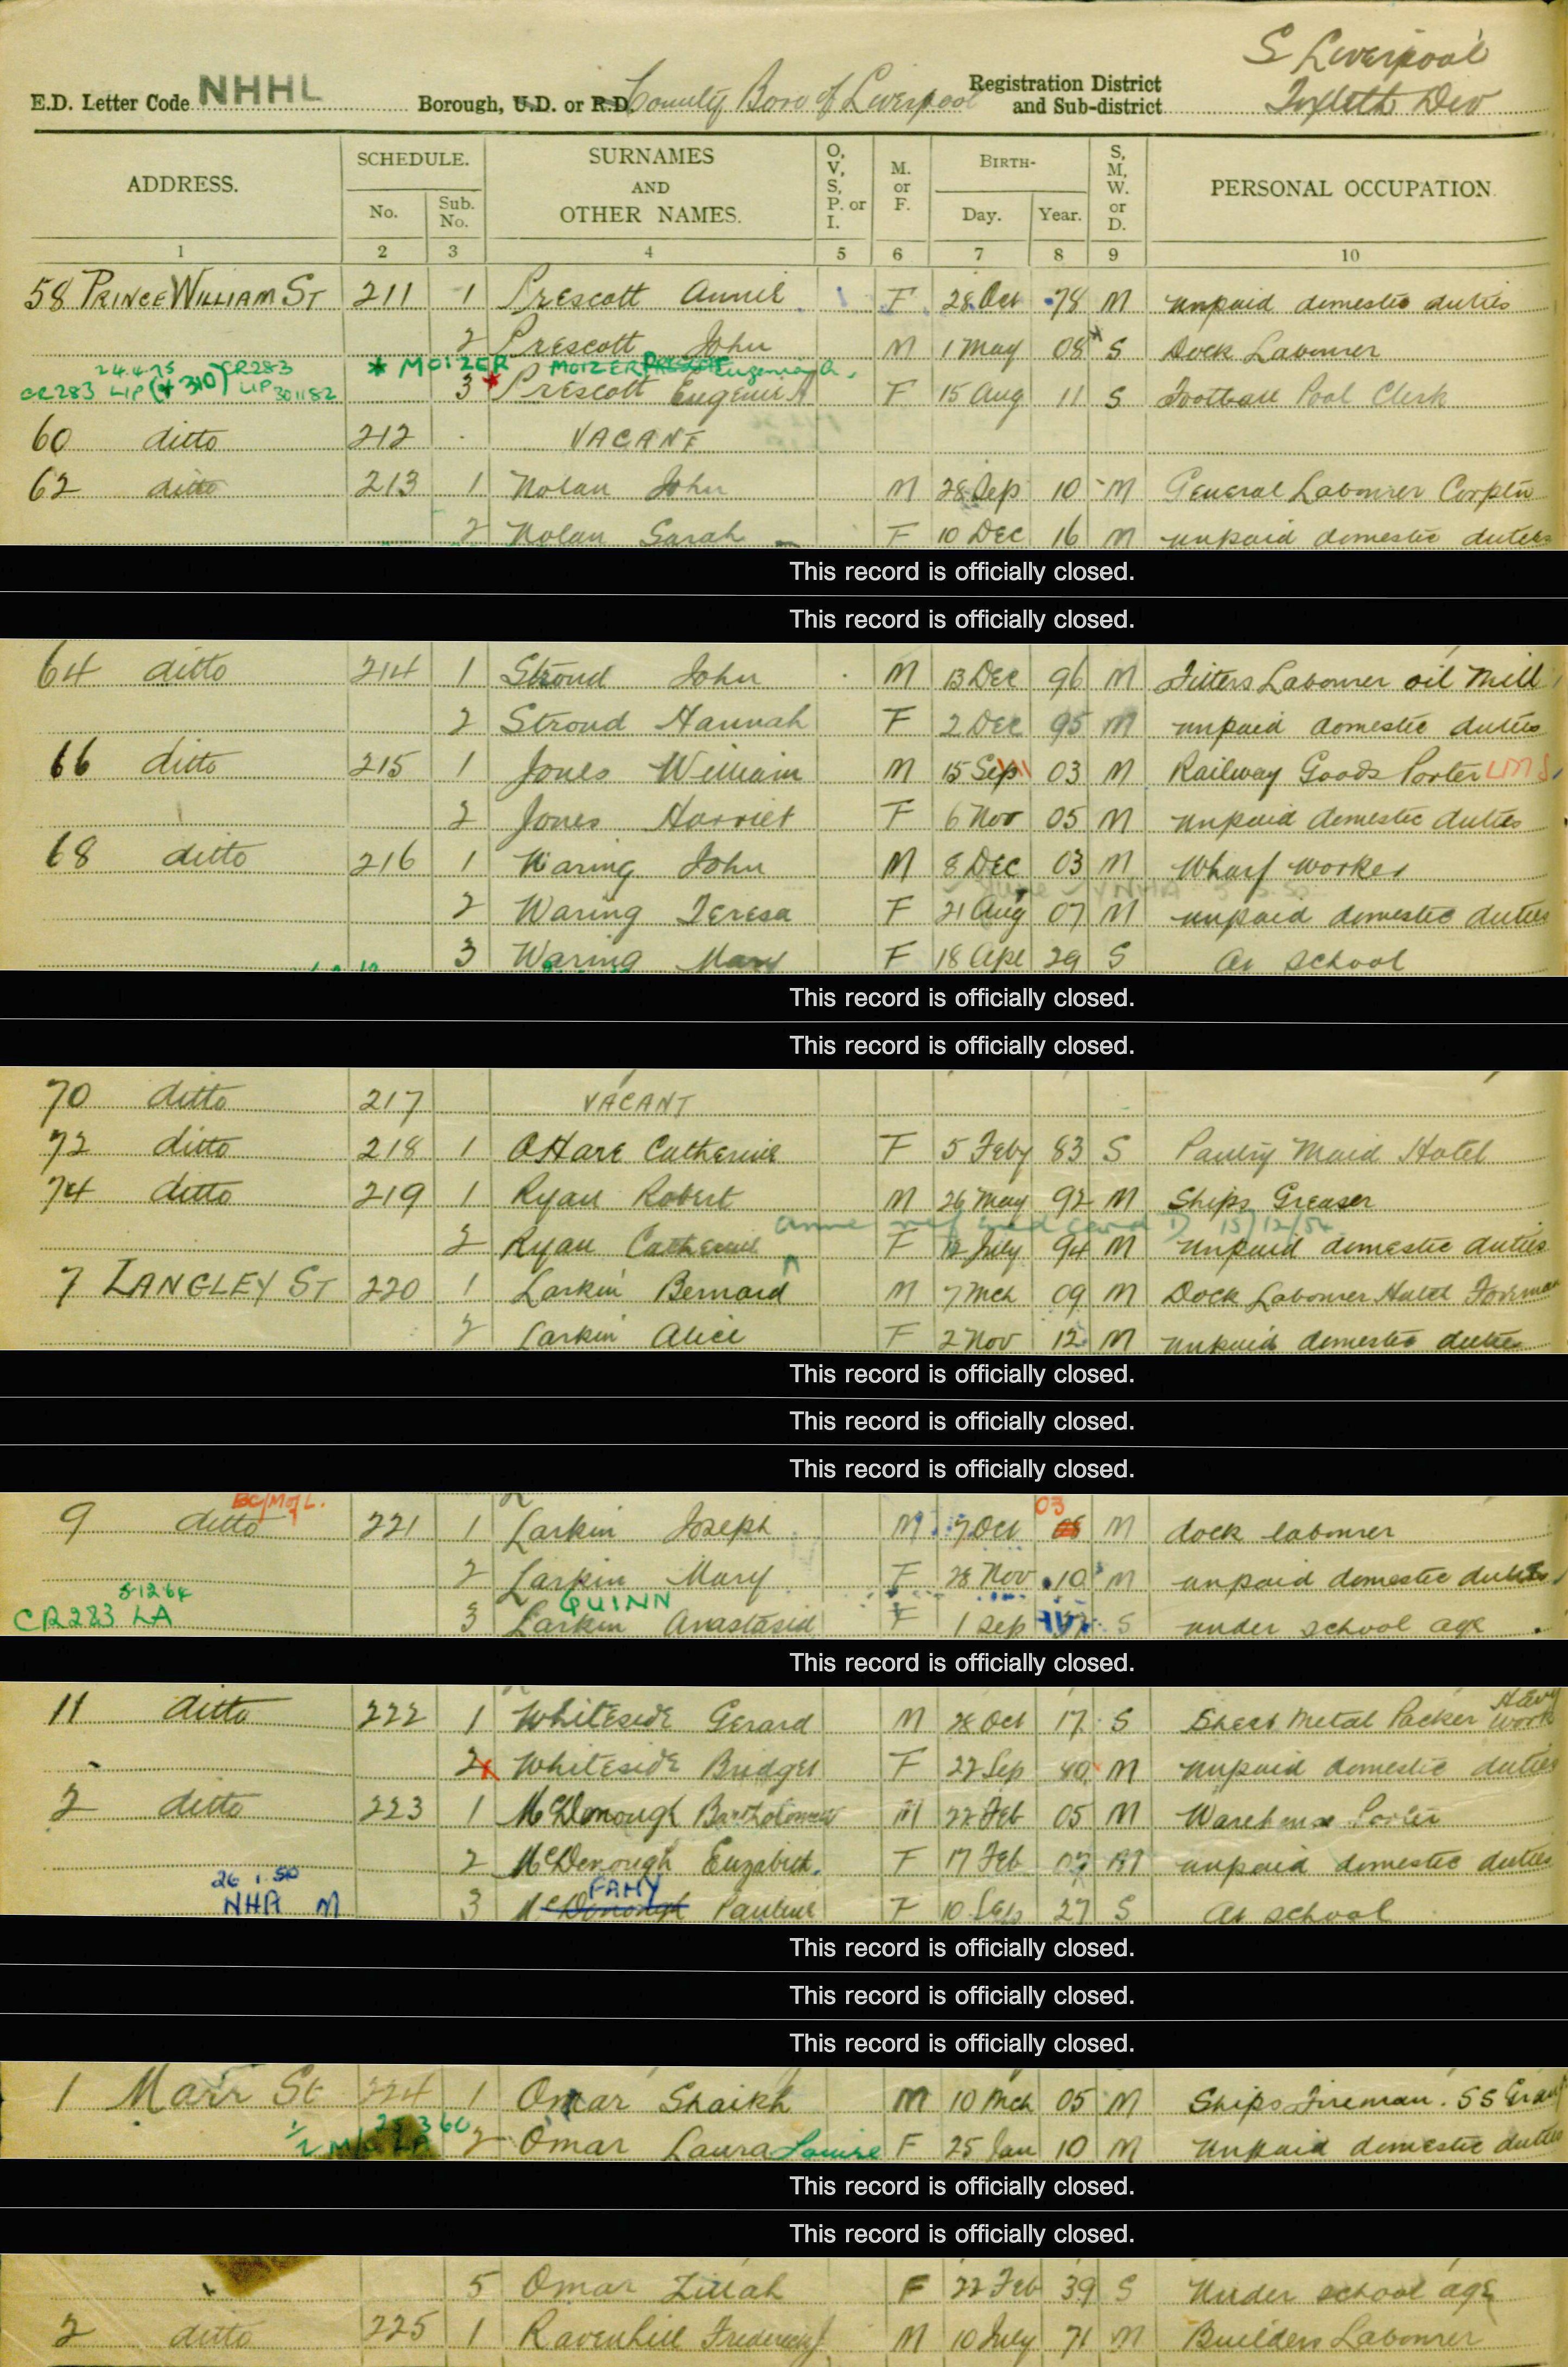 S Liverpool
E.D. Letter Code NHHL Borough, U.D. or R.D. County Boro of Liverpool Registration District and Sub-district Toxteth Div
ADDRESS. SCHEDULE. No. Sub. No. SURNAMES AND OTHER NAMES. O, V, S, P. or I. M. or F. BIRTH- Day. Year. S, M, W. or D. PERSONAL OCCUPATION.
1 2 3 4 5 6 7 8 9 10
58 PRINCE WILLIAM ST 211 1 Prescott Annie F 28 Oct 78 M unpaid domestic duties
2 Prescott John M 1 May 08 S Dock Labourer
24.4.75 CR283 * MOIZER MOIZER Eugenia A.
CR283 LIP (+310) LIP 301182 3 * Prescott Eugenie A F 15 Aug 11 S Football Pool Clerk
60 ditto 212 VACANT
62 ditto 213 1 Nolan John M 28 Sep 10 M General Labourer Corptn
2 Nolan Sarah F 10 Dec 16 M unpaid domestic duties
This record is officially closed.
This record is officially closed.
64 ditto 214 1 Stroud John M 13 Dec 96 M Fitters Labourer oil Mill
2 Stroud Hannah F 2 Dec 95 M unpaid domestic duties
66 ditto 215 1 Jones William M 15 Sep 03 M Railway Goods Porter LMS
2 Jones Harriet F 6 Nov 05 M unpaid domestic duties
68 ditto 216 1 Waring John M 8 Dec 03 M Wharf worker
2 Waring Teresa F 21 Aug 07 M unpaid domestic duties
3 Waring Mary F 18 Apl 29 S At school
This record is officially closed.
This record is officially closed.
70 ditto 217 VACANT
72 ditto 218 1 OHare Catherine F 5 Feby 83 S Pantry Maid Hotel
74 ditto 219 1 Ryan Robert M 26 May 92 M Ships Greaser
Anne ref med card D 15/12/54
2 Ryan Catherine F 12 July 94 M unpaid domestic duties
7 LANGLEY ST 220 1 Larkin Bernard M 7 Mch 09 M Dock Labourer Hatch Foreman
2 Larkin Alice F 2 Nov 12 M unpaid domestic duties
This record is officially closed.
This record is officially closed.
This record is officially closed.
BC/MofL. 03
9 ditto 221 1 Larkin Joseph M 7 Oct M dock labourer
2 Larkin Mary F 28 Nov 10 M unpaid domestic duties
5.12.64 QUINN
CR283 LA 3 Larkin Anastasia F 1 Sep S under school age
This record is officially closed.
11 ditto 222 1 Whiteside Gerard M 28 Oct 17 S Sheet Metal Packer Heavy Work
2 x Whiteside Bridget F 22 Sep 80 M unpaid domestic duties
2 ditto 223 1 McDonough Bartholomew M 22 Feb 05 M Warehouse Porter
2 McDonough Elizabeth F 17 Feb 07 M unpaid domestic duties
26.1.50 FAHY
NHA M 3 McDonough Pauline F 10 Feb 27 S At school
This record is officially closed.
This record is officially closed.
This record is officially closed.
1 Marr St 224 1 Omar Shaikh M 10 Mch 05 M Ships Fireman. SS
25 3 60 2 Omar Laura Louise F 25 Jan 10 M Unpaid domestic duties
This record is officially closed.
This record is officially closed.
5 Omar Zillah F 22 Feb 39 S Under school age
2 ditto 225 1 Ravenhill Frederick J M 10 July 71 M Builders Labourer